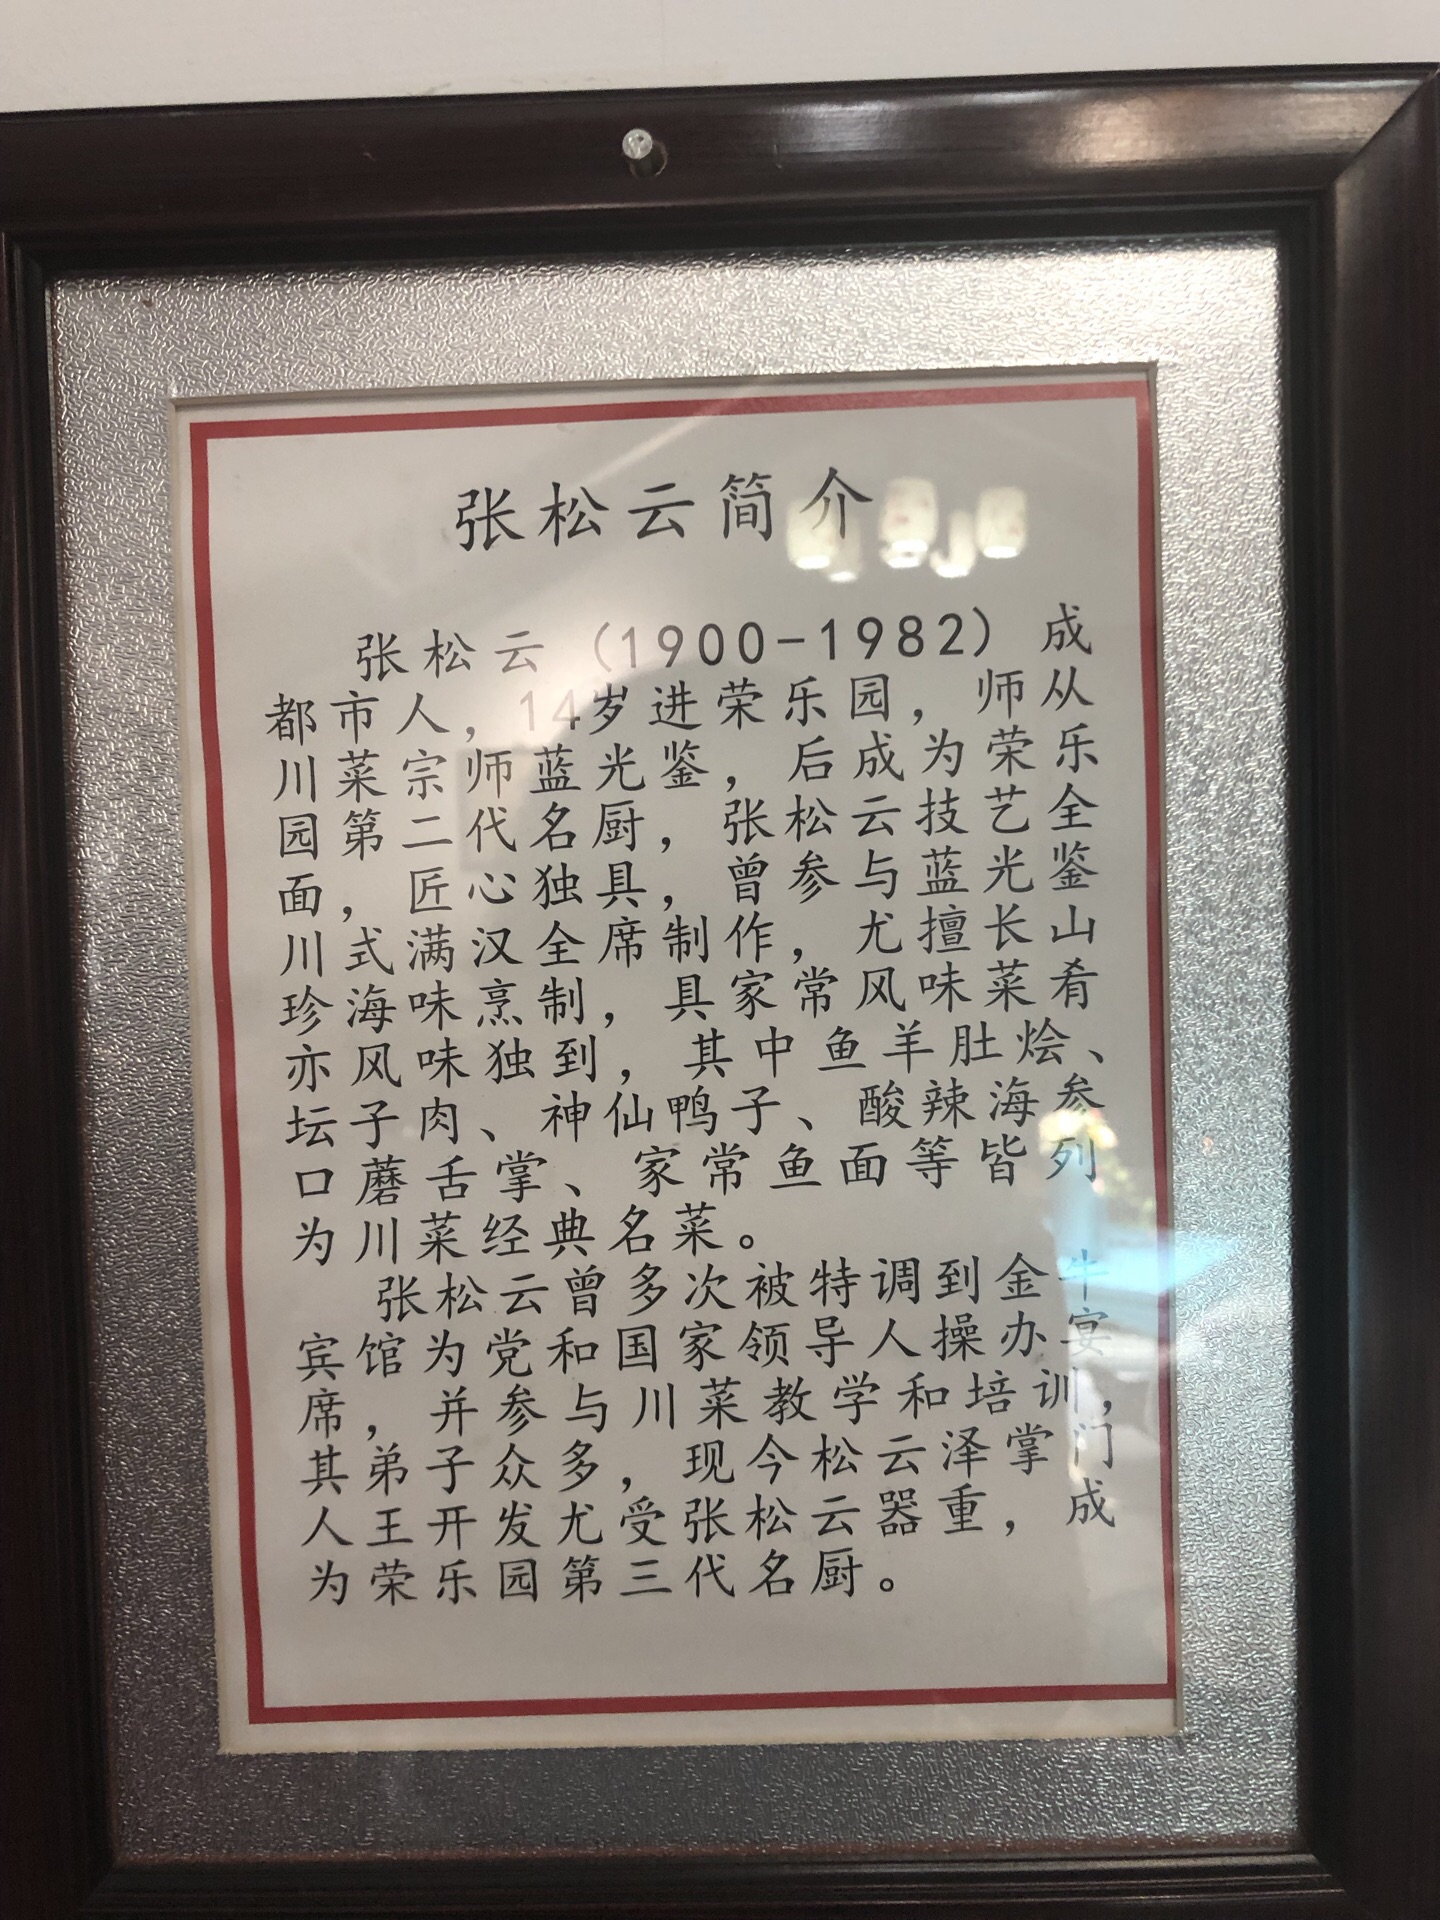 张松云简介
张松云（1900-1982）成
都市人，14岁进荣乐园，师从
川菜宗师蓝光鉴，后成为荣乐
园第二代名厨，张松云技艺全
面，匠心独具，曾参与蓝光鉴
川式满汉全席制作，尤擅长山
珍海味烹制，具家常风味菜肴
亦风味独到，其中鱼羊肚烩、
坛子肉、神仙鸭子、酸辣海参
口蘑舌掌、家常鱼面等皆列
为川菜经典名菜。
张松云曾多次被特调到金牛
宾馆为党和国家领导人操办宴
席，并参与川菜教学和培训，
其弟子众多，现今松云泽掌门
人王开发尤受张松云器重，成
为荣乐园第三代名厨。